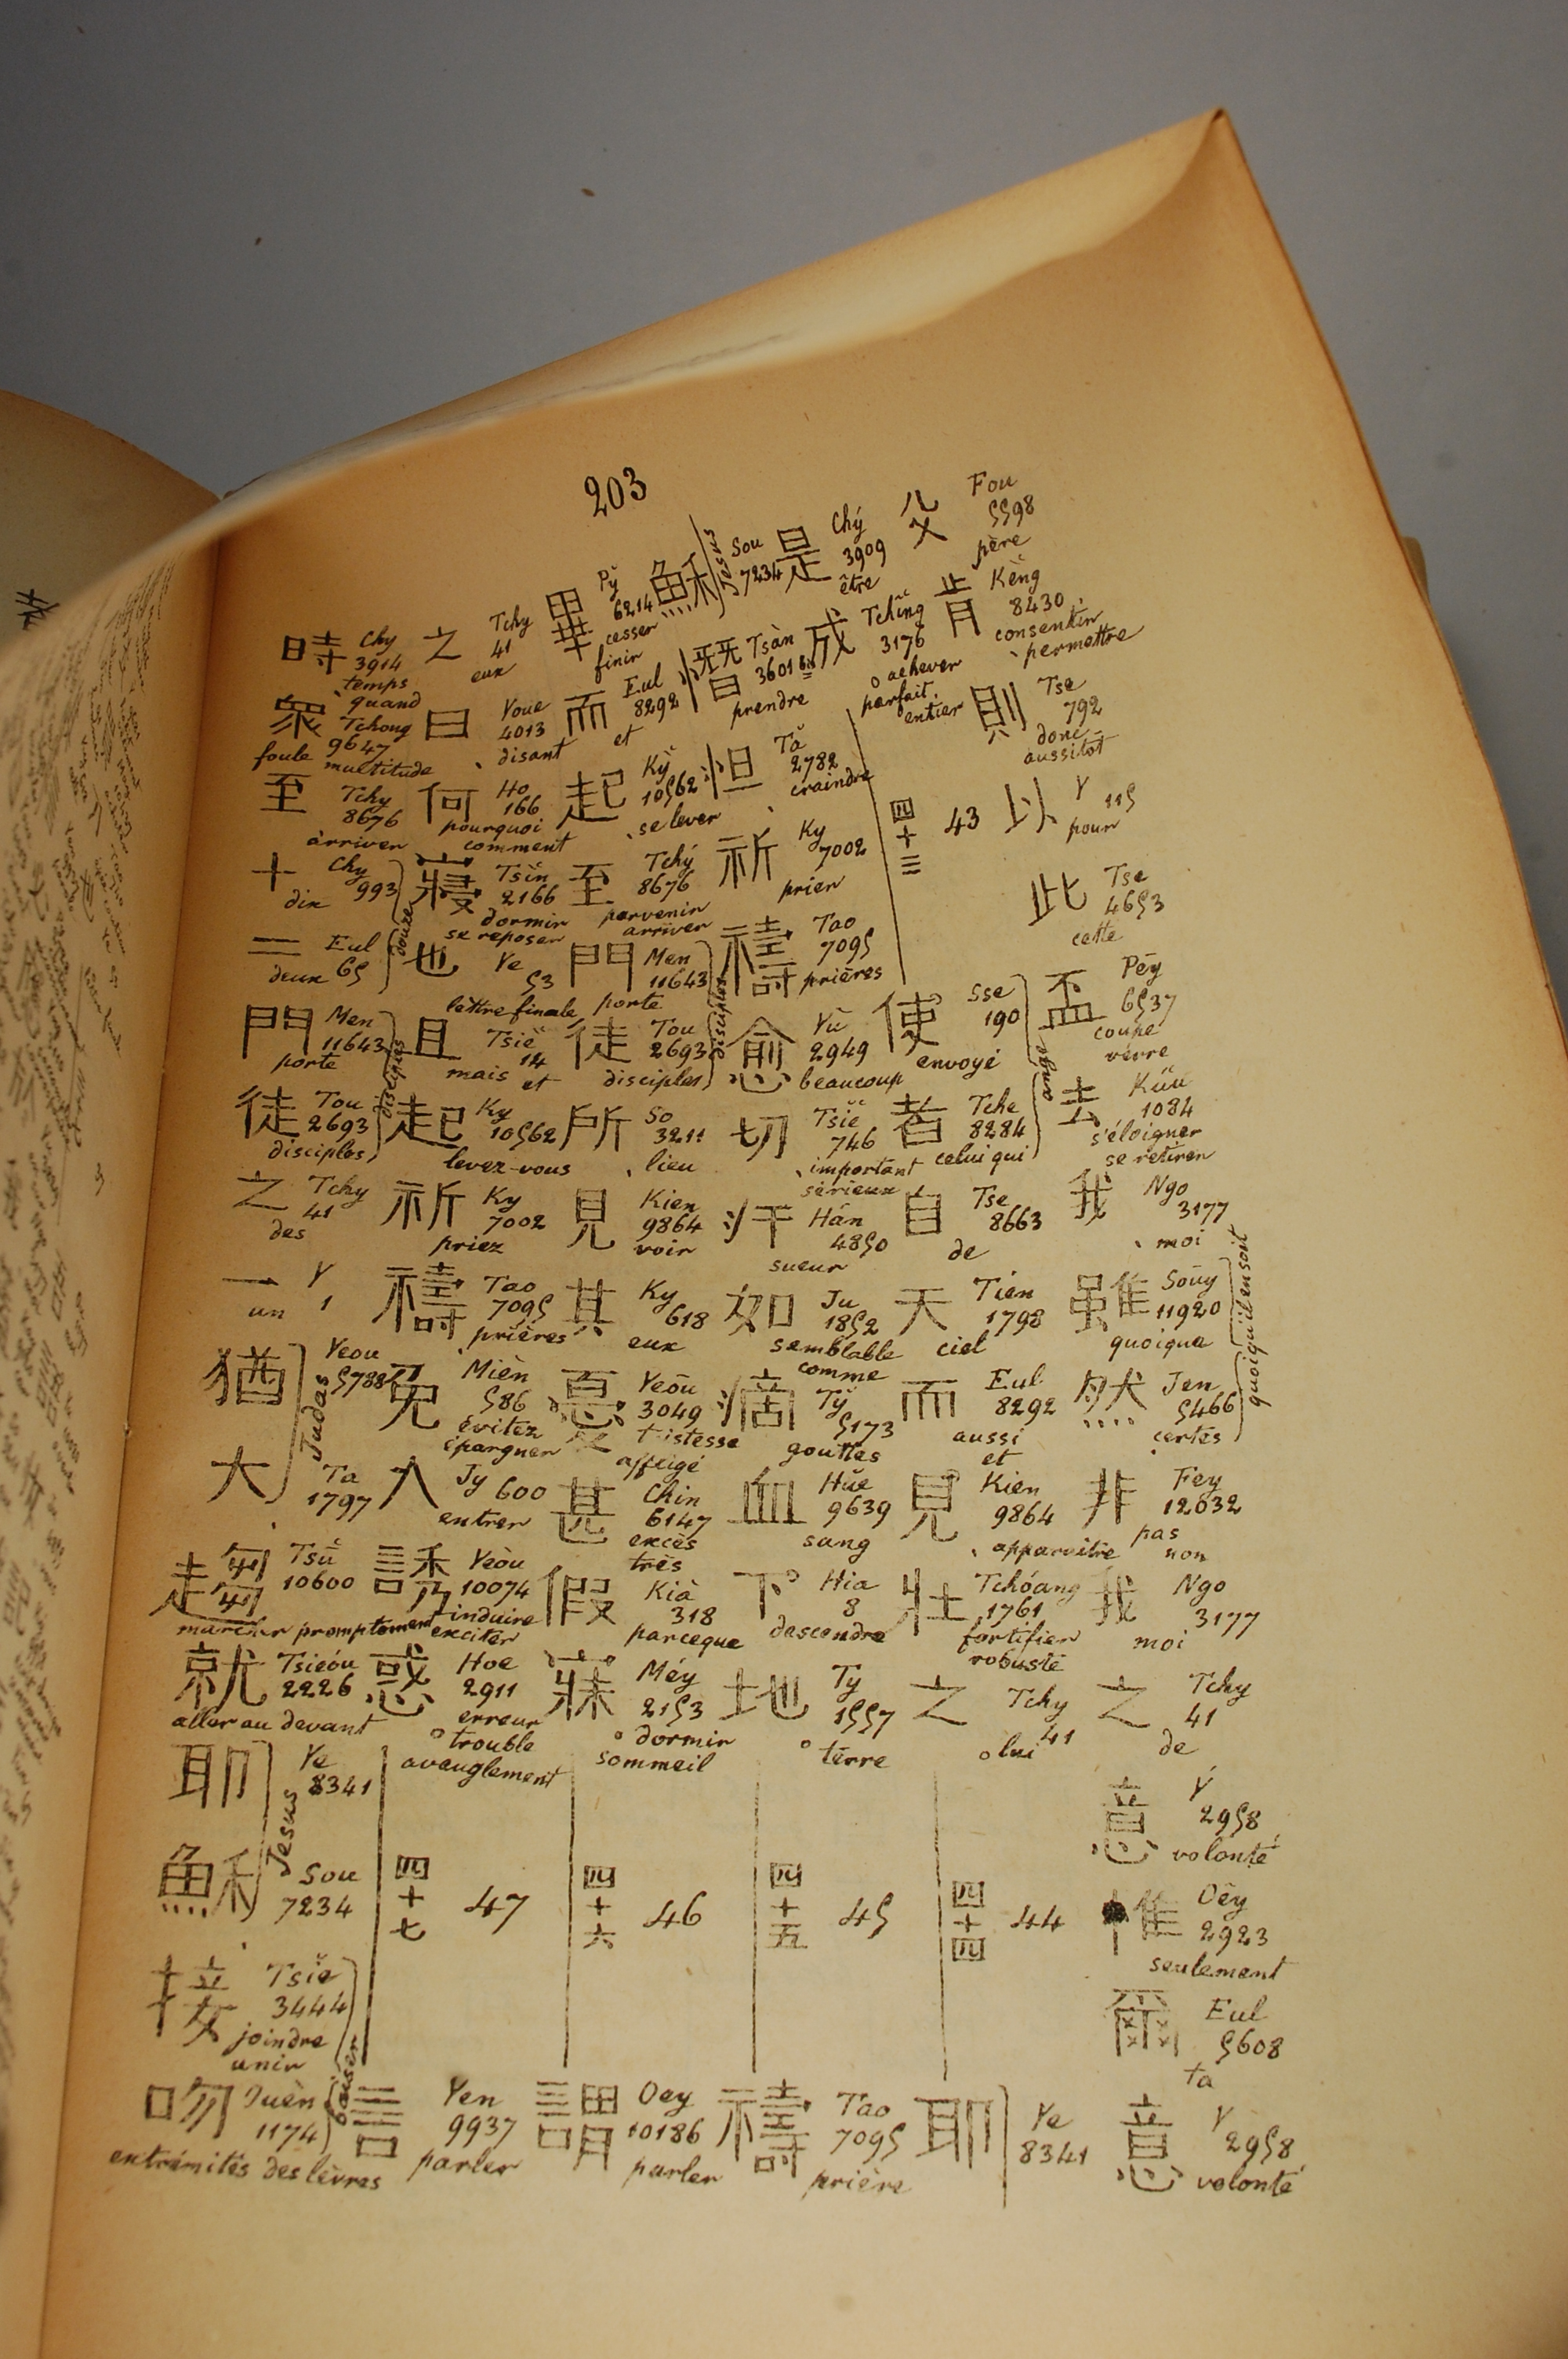 203
父 Fou
5598
père
肯 Kĕng
8430
consentir
permettre
則 Tse
792
donc
aussitôt
以 Y
115
pour
此 Tse
4653
cette
盃 Pēy
6537
coupe
verre
去 Kŭu
1084
s'éloigner
se retirer
我 Ngo
3177
moi
雖 Soūy
11920
quoique
quoiqu'il en soit
然 Jen
5466
certes
非 Fey
12032
pas
non
我 Ngo
3177
moi
之 Tchy
41
de
意 Ý
2958
volonté
惟 Oēy
2923
seulement
爾 Eul
5608
ta
意 Y
2958
volonté
是 Chý
3909
être
成 Tchĭng
3176
achever
parfait
entier
四十三 43
使 Sse
190
envoyé
ange
者 Tche
8284
celui qui
自 Tse
8663
de
天 Tien
1798
ciel
而 Eul
8292
aussi
et
見 Kien
9864
apparaître
壯 Tchóang
1761
fortifier
robuste
之 Tchy
41
lui
四十四 44
耶 Ye
8341
穌 Sou
7234
Jesus
憯 Tsàn
3601 bis
prendre
怛 Tă
2782
craindre
祈 Ky
7002
prier
禱 Tao
7095
prières
愈 Yù
2949
beaucoup
切 Tsiĕ
746
important
sérieux
汗 Hán
4850
sueur
如 Ju
1852
semblable
comme
滴 Tў
5173
gouttes
血 Hŭe
9639
sang
下 Hia
8
descendre
地 Ty
1557
terre
四十五 45
禱 Tao
7095
prière
畢 Pў
6214
cesser
finir
而 Eul
8292
et
起 Kỳ
10562
se lever
至 Tchý
8676
parvenir
arriver
門 Men
11643
porte
disciples
徒 Tou
2693
disciples
所 So
3211
lieu
見 Kien
9864
voir
其 Ky
618
eux
憂 Yeōu
3049
tristesse
affligé
甚 Chin
6147
excès
très
假 Kià
318
parceque
寐 Méy
2153
dormir
sommeil
四十六 46
謂 Oey
10186
parler
之 Tchy
41
eux
曰 Youe
4013
disant
何 Ho
166
pourquoi
comment
寢 Tsìn
2166
dormir
se reposer
也 Ye
53
lettre finale
且 Tsiĕ
14
mais
et
起 Ky
10562
levez-vous
祈 Ky
7002
priez
禱 Tao
7095
prières
免 Mièn
586
évitez
épargner
入 Jy 600
entrer
誘 Yeòu
10074
induire
exciter
惑 Hoe
2911
erreur
trouble
aveuglement
四十七 47
言 Yen
9937
parler
時 Chy
3914
temps
quand
眾 Tchong
9647
foule multitude
至 Tchy
8676
arriver
十 Chy
993
dix
douze
二 Eul
65
deux
門 Men
11643
porte
disciples
徒 Tou
2693
disciples
之 Tchy
41
des
一 Y
1
un
猶 Yeou
5788
Judas
大 Ta
1797
趨 Tsŭ
10600
marcher promptement
就 Tsieóu
2226
aller au devant
耶 Ye
8341
Jesus
穌 Sou
7234
接 Tsiĕ
3444
joindre
unir
baiser
吻 Ouèn
1174
extrémités des lèvres